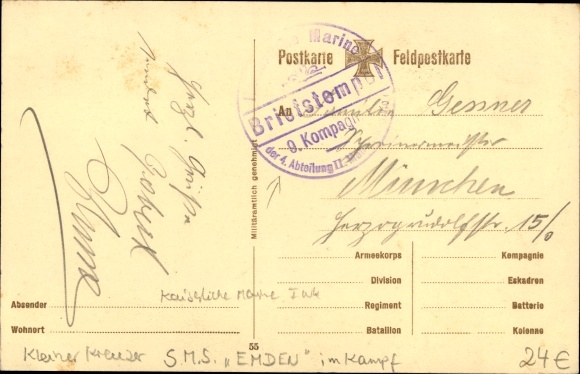 Herzl. Grüße
Robert
Postkarte Feldpostkarte
Marine
Briefstempel
9. Kompagnie
der 4. Abteilung II.
An Familie Gessner
Schreinermeister
München
Herzogrudolfstr. 15/0
Militäramtlich genehmigt
Armeekorps Kompagnie
Division Eskadron
Regiment Batterie
Bataillon Kolonne
Absender
Wohnort
55
Kaiserliche Marine I WK
Kleiner Kreuzer S.M.S. „EMDEN" im Kampf
24€